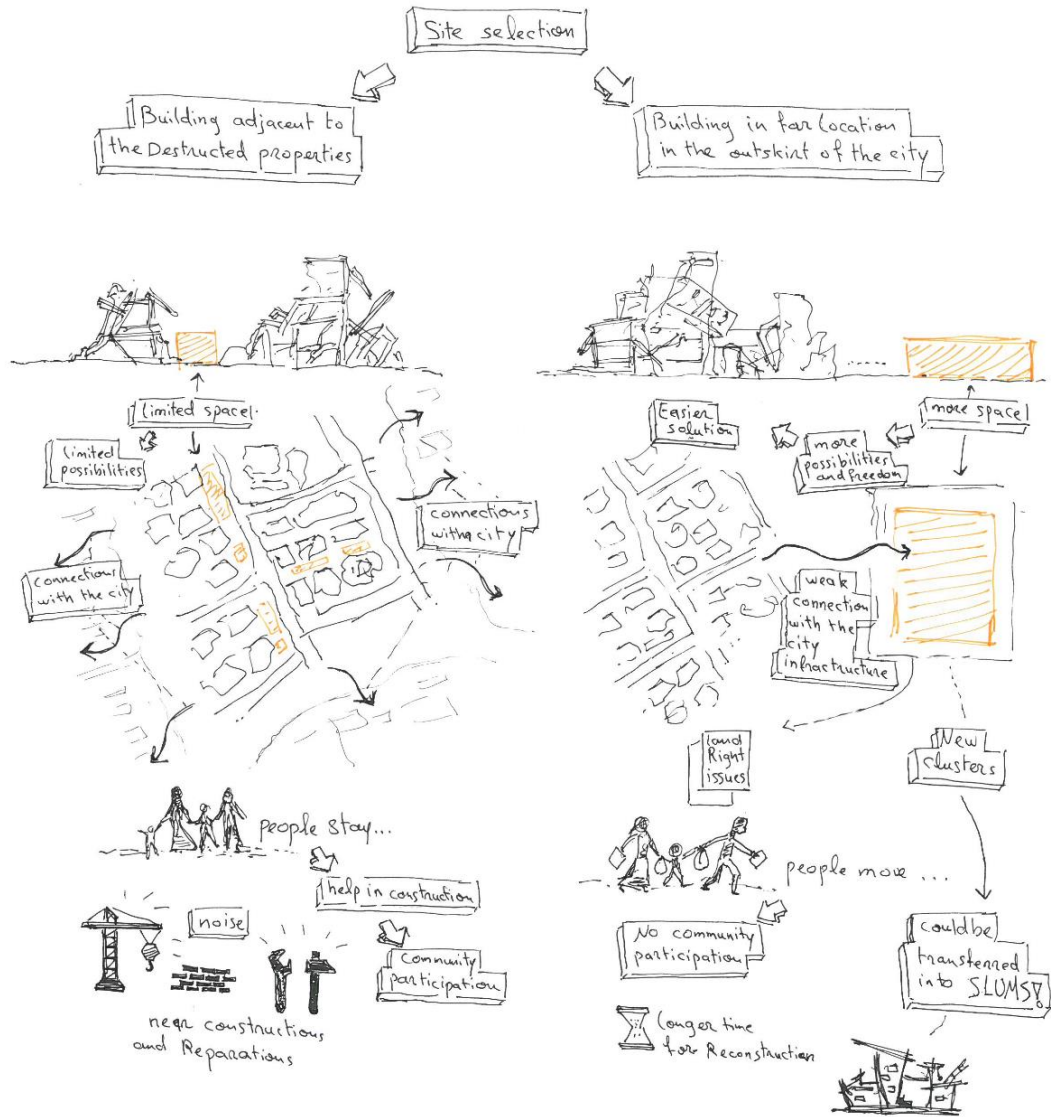 Site selection
Building adjacent to
the Destructed properties
limited space
limited
possibilities
connections
with city
connections
with the city
people stay...
help in construction
community
participation
noise
near constructions
and Reparations
Building in far location
in the outskirt of the city
more space
more
possibilities
and freedom
Easier
solution
weak
connection
with the
city
infractructure
land
Right
issues
New
clusters
people move ...
No community
participation
longer time
for Reconstruction
could be
transferred
into SLUMS!